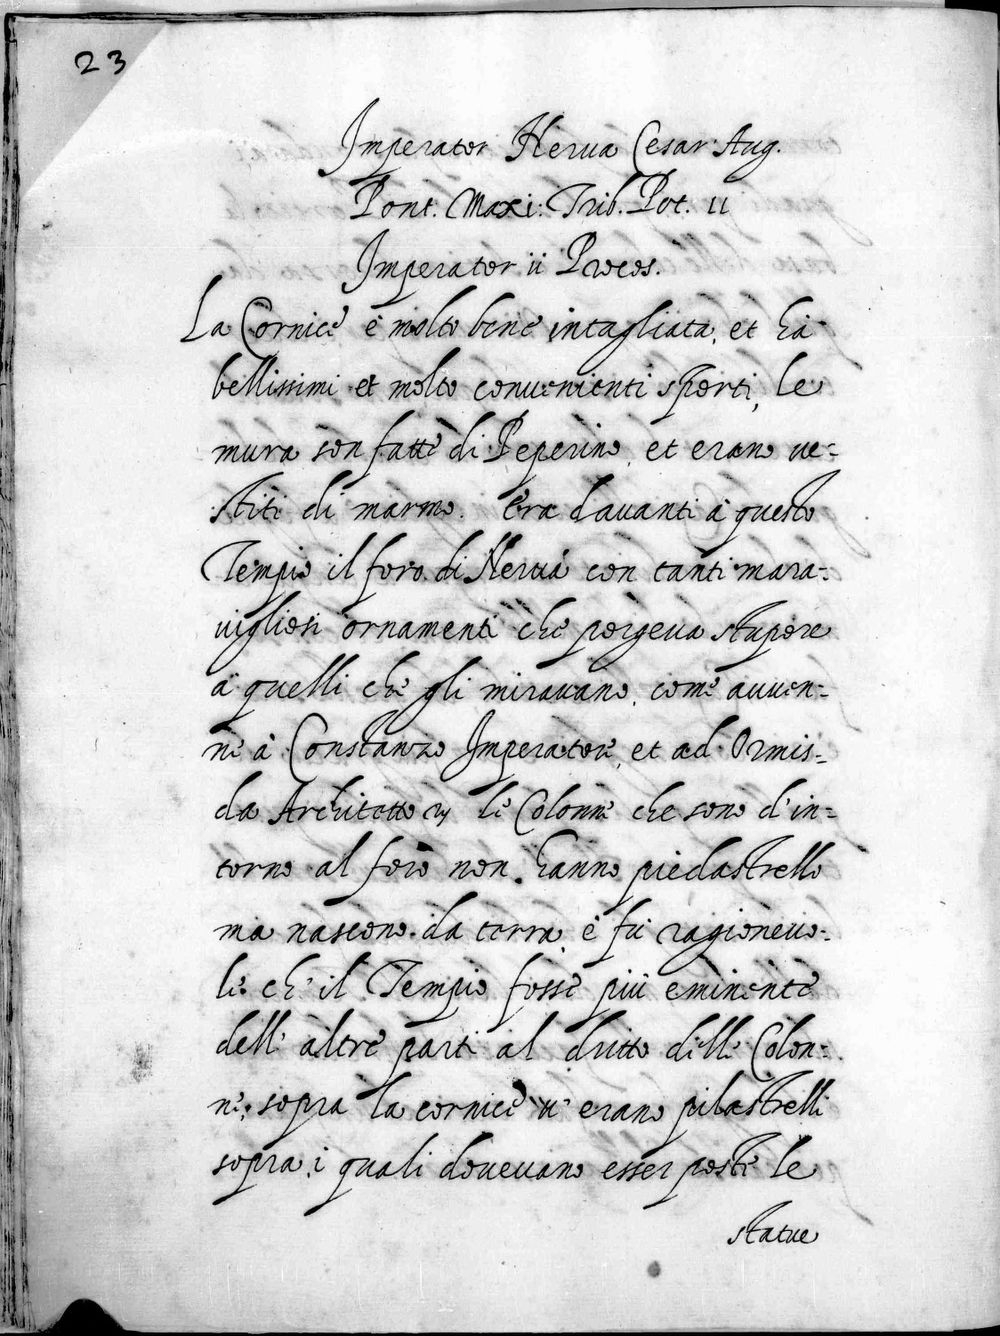 23
Imperator Nerua Cesar Aug.
Pont. Maxi: Trib. Pot. II
Imperator ii Procos.
La Cornice è molto bene intagliata, et hà
bellissimi et molto conuenienti sporti, le
mura son fatte di Peperino, et erano ue=
stiti di marmo. Era dauanti à questo
Tempio il foro di Neruà con tanti mara=
uigliosi ornamenti che porgeua stupore
à quelli che gli mirauano, come auuen=
ne à Constanzo Imperatore, et ad Ormis=
da Architetto le Colonne che sono d'in=
torno al foro non hanno piedastrello
ma nascono da terra, e fù ragioneuo=
le ch'il Tempio fosse più eminente
dell'altre parti al dritto delle Colon=
ne; sopra la cornice u'erano pilastrelli
sopra i quali doueuano esser poste le
statue